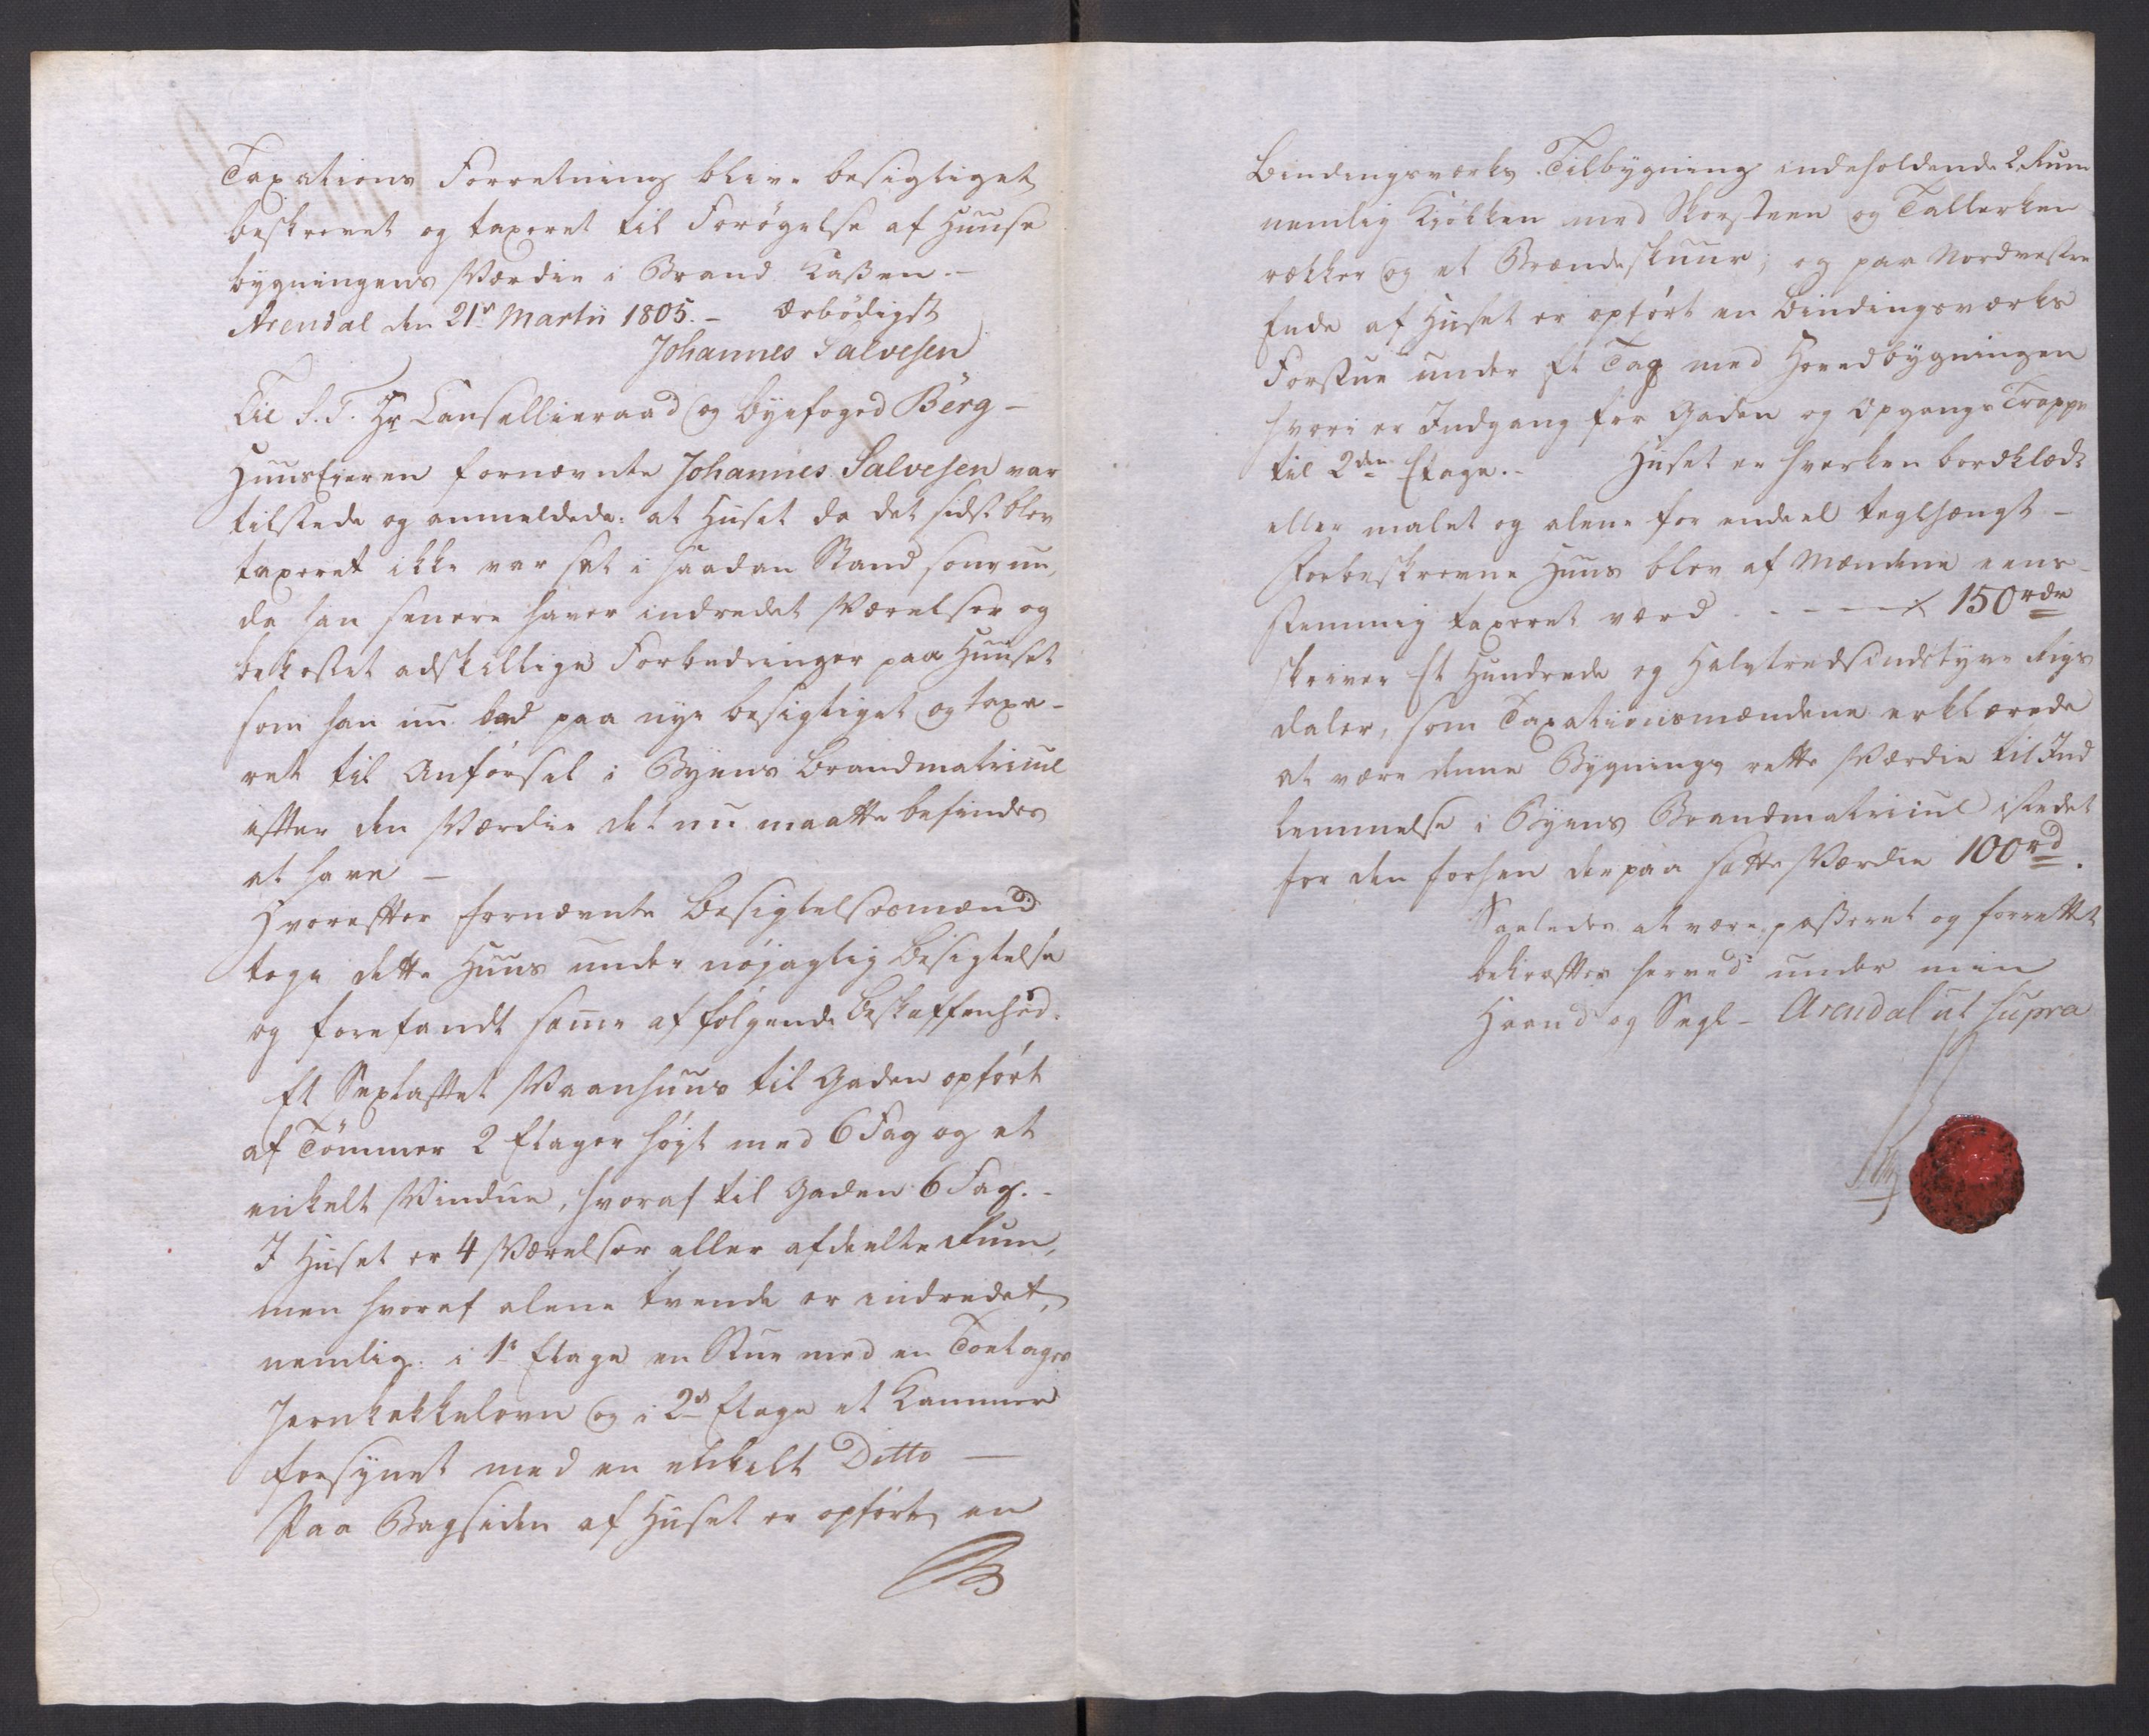 Taxations Forretning blive besigtiget,
beskrevet og taxeret til Forøgelse af Huuse
bygningens Værdie i Brand Kaßen. -
Arendal den 21de Martii 1805. - Ærbödigst
Johannes Salvesen
Til S. T. Hr Cancellieraad og Byefoged Berg -
Huuseieren fornævnte Johannes Salvesen var
tilstede og anmeldede: at Huset da det sidst blev
taxeret ikke var sat i saadan Stand som nu,
da han senere haver indredet Værelser og
bekostet adskillige Forbedringer paa Huuset
som han nu bad paa nye besigtiget og taxe-
ret til Anförsel i Byens Brandmatricul
efter den Værdie det nu maatte befindes
at have -
Hvorefter fornævnte Besigtelsesmænd
toge dette Huus under nöjagtig Besigtelse
og forefandt samme af følgende Beskaffenhed.
Et Sexlaftet Vaanhuus til Gaden opfört
af Tömmer 2 Etager höyt med 6 Fag og et
enkelt Vindue, hvoraf til Gaden 6 Fag. -
I Huset er 4 Værelser eller afdeelte Rum,
men hvoraf alene tvende er indredet,
nemlig: i 1te Etage en Stue med en Toetages
Jernkakkelovn og i 2den Etage et Kammer
forsynet med en enkelt Ditto -
Paa Bagsiden af Huset er opfört en
Bindingsværks Tilbygning indeholdende 2 Rum
nemlig Kiökken med Skorsteen og Tallerken
rækker og et Brændeskuur; og paa Nordvestre
Ende af Huset er opfört en Bindingsværks
Forstue under Et Tag med Hovedbygningen
hvori er Indgang fra Gaden og Opgangs Trappe
til 2den Etage. - Huset er hverken bordklædt
eller malet og alene for endeel teglhængt -
Forbeskrevne Huus blev af Mændene eens-
stemmig taxeret værd - - - - 150 rdr
skriver Et Hundrede og Halvtredsindstyve Rigs
daler, som Taxationsmændene erklærede
at være denne Bygnings rette Værdie til Ind
lemmelse i Byens Brandmatricul istedet
for den forhen derpaa satte Værdie 100 rd.
Saaledes at være passeret og forrettet
bekræftes herved under min
Haand og Segl - Arendal ut supra